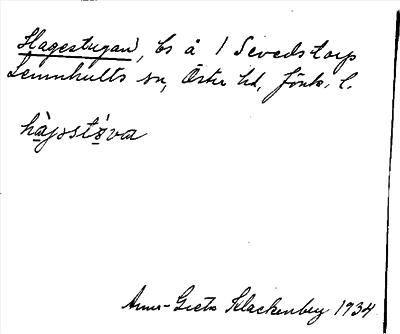 Hagestugan, ls å 1 Sevedstorp
Lemnhults sn, Östra hd, Jönk. l.
hàjsstòva
Anna-Greta Klackenberg 1934